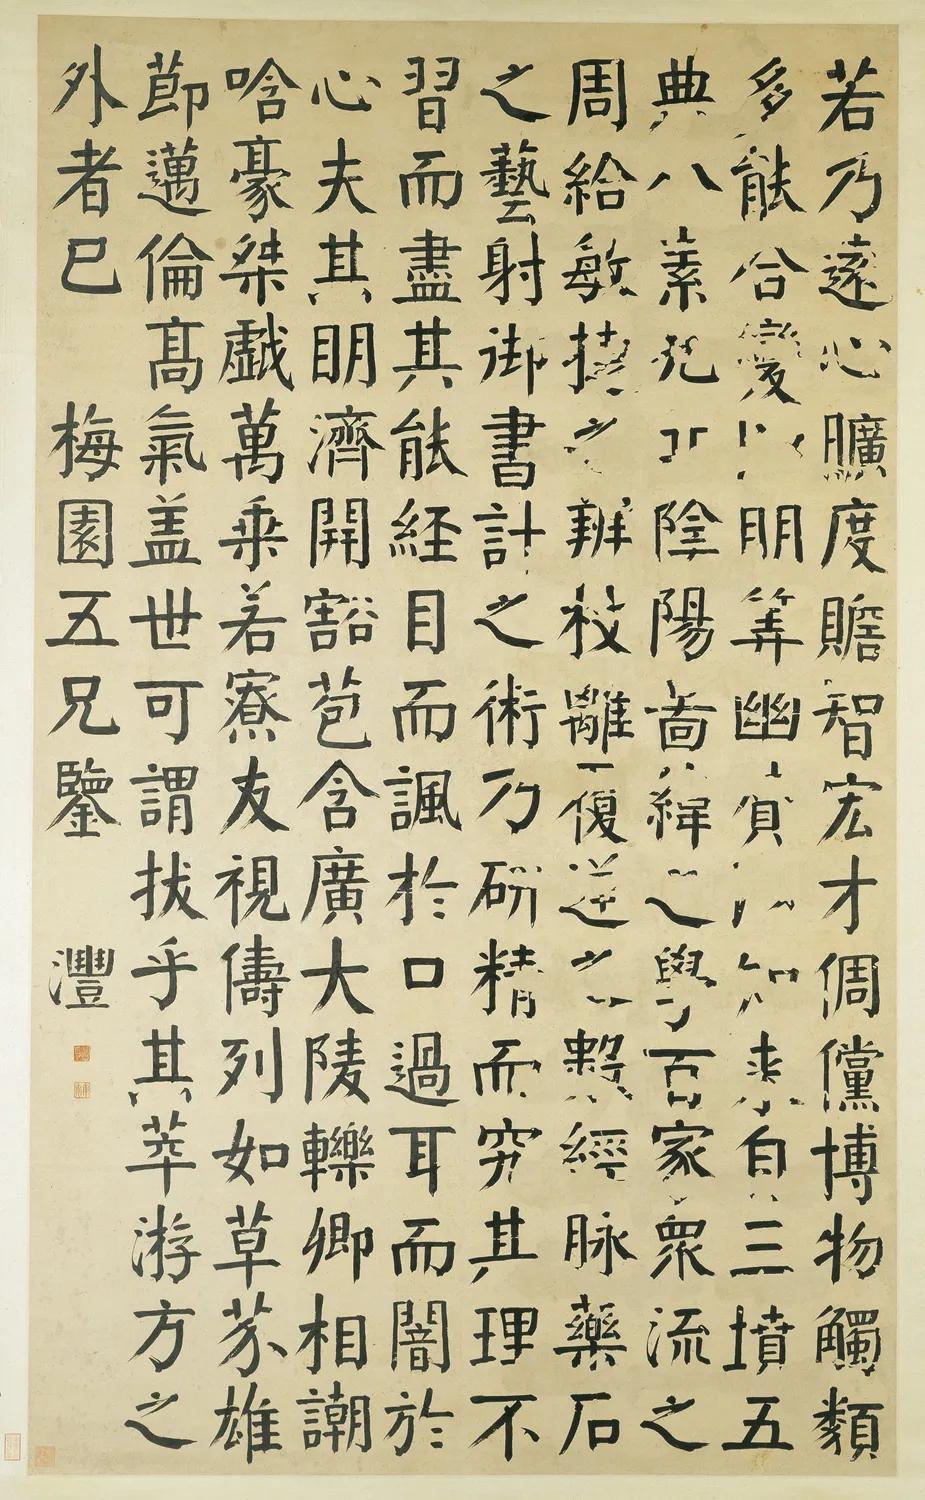 若乃遠心曠度贍智宏才倜儻博物觸類
多能合變以明筭幽贊以知來自三墳五
典八素九丘陰陽啚緯之學百家衆流之
周給敏捷之辨枝離覆逆之數經脉藥石
之藝射御書計之術乃研精而究其理不
習而盡其能經目而諷於口過耳而闇於
心夫其明濟開豁苞含廣大陵轢卿相謿
唅豪桀戱萬乘若寮友視儔列如草芥雄
節邁倫髙氣盖世可謂拔乎其萃游方之
外者已 梅園五兄鑒 灃